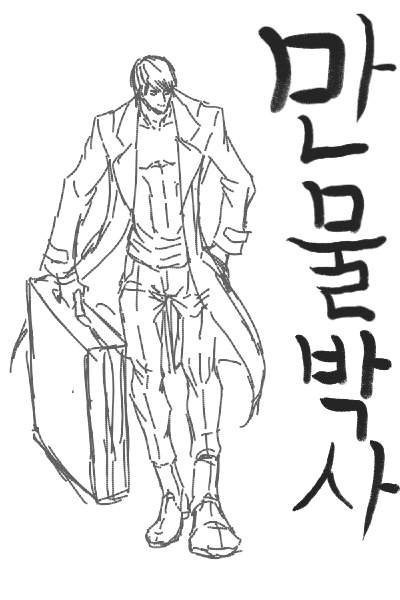 만물박사